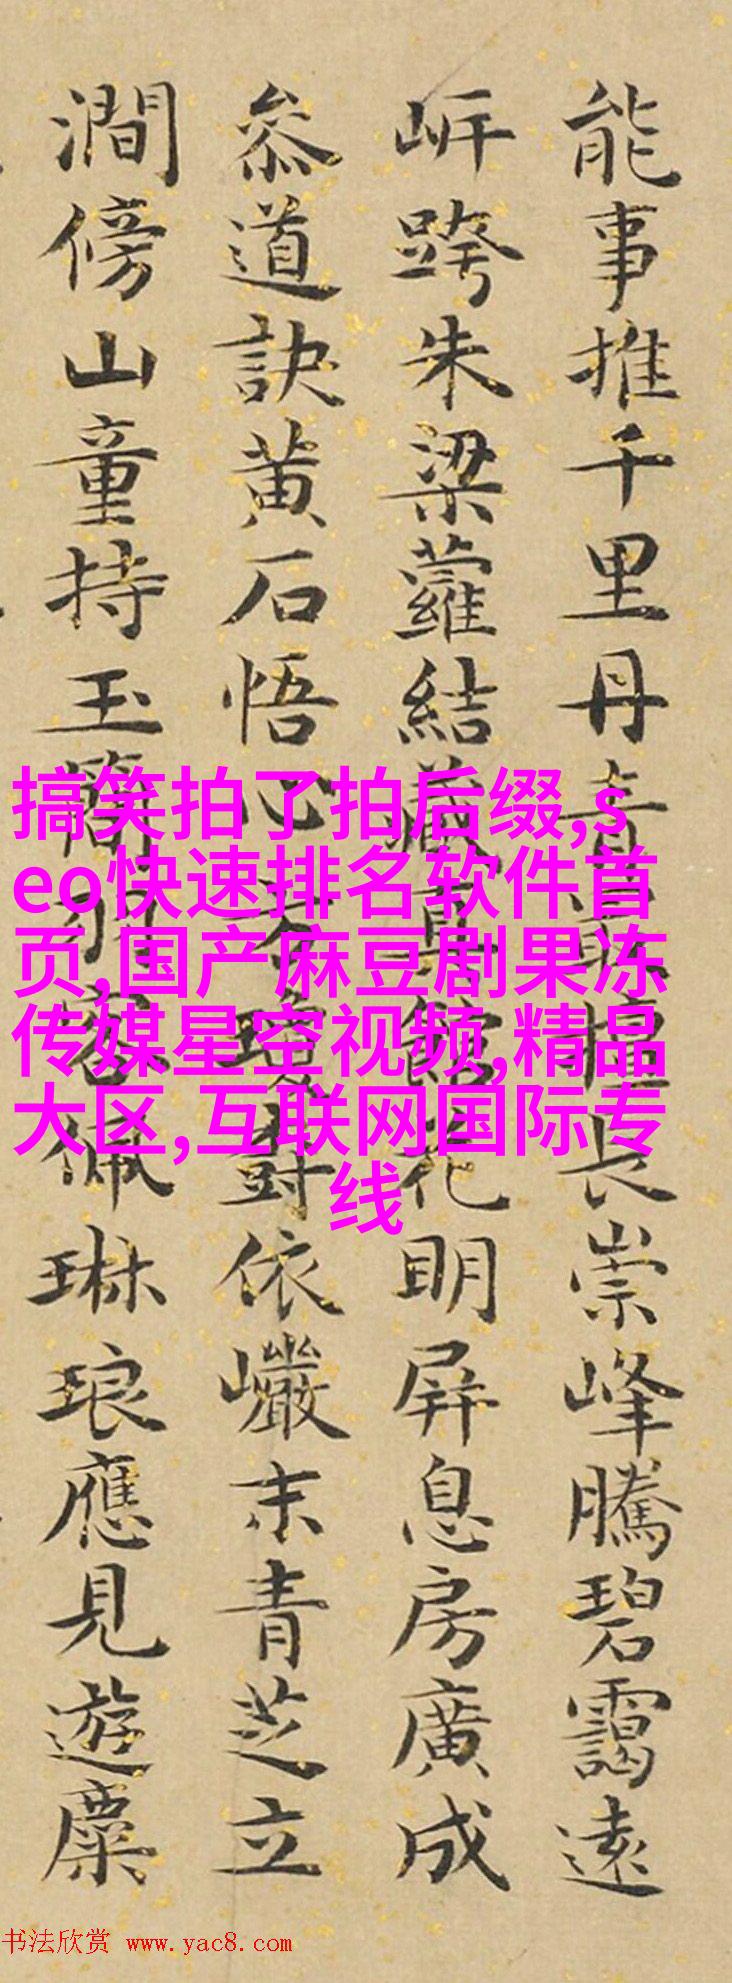 能事推千里丹青最擅長崇峰騰碧靄遠
岍跨朱梁蘿結藏真館花明屏息房廣成
叅道訣黃石悟心方瓊樹依巖末青芝立
澗傍山童持玉簡羽客佩琳琅應見遊麋
搞笑拍了拍后缀,s
eo快速排名软件首
页,国产麻豆剧果冻
传媒星空视频,精品
大区,互联网国际专
线
书法欣赏 www.yac8.com